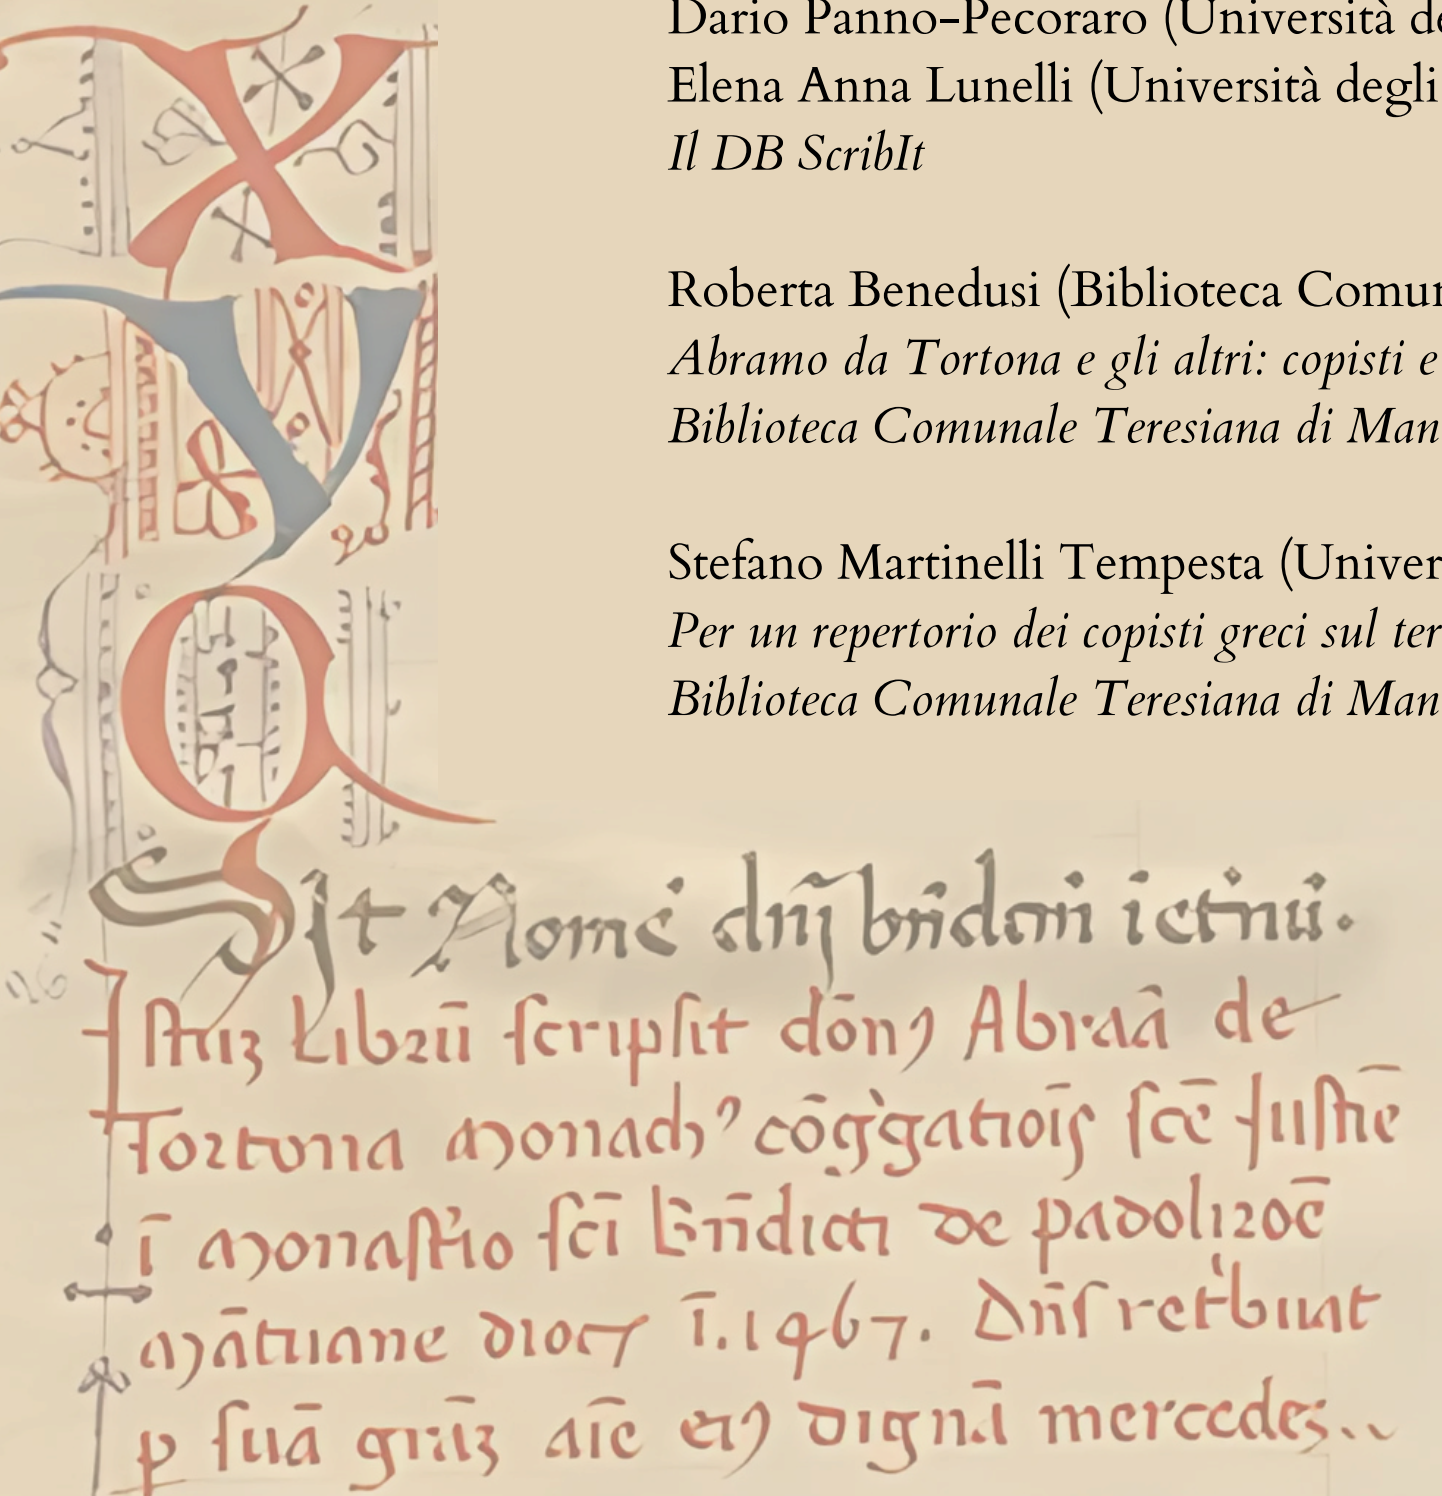 Dario Panno-Pecoraro (Università de
Elena Anna Lunelli (Università degli
Il DB ScribIt
Roberta Benedusi (Biblioteca Comun
Abramo da Tortona e gli altri: copisti e
Biblioteca Comunale Teresiana di Man
Stefano Martinelli Tempesta (Univer
Per un repertorio dei copisti greci sul ter
Biblioteca Comunale Teresiana di Man
X
Y
Q
Sit Nomē dnī bn̄dcm̄ i etnū.
Istuꝫ Libꝛū scripsit dōnꝰ Abraā de
Tortona monachꝰ cōg̍gatiōis scē Iustīe
ī monast̍io scī Bn̄dicti de padoliꝛōe
māntuane dioc̄ ī.1467. Dn̄s ret̍buat
ꝑ suā grāꝫ aīe eiꝰ dignā mercedeꝫ..